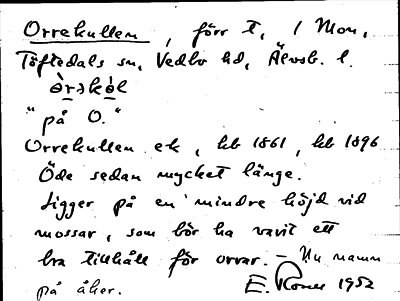 Orrekullen, förr t, 1 Mon,
Töftedals sn, Vedbo hd, Älvsb. l.
òrəkèl
"på O."
Orrekullen ek, kb 1861, kb 1896
Öde sedan mycket länge.
Ligger på en mindre höjd vid
mossar, som bör ha varit ett
bra tillhåll för orrar. – Nu namn
på åker. E. 1952